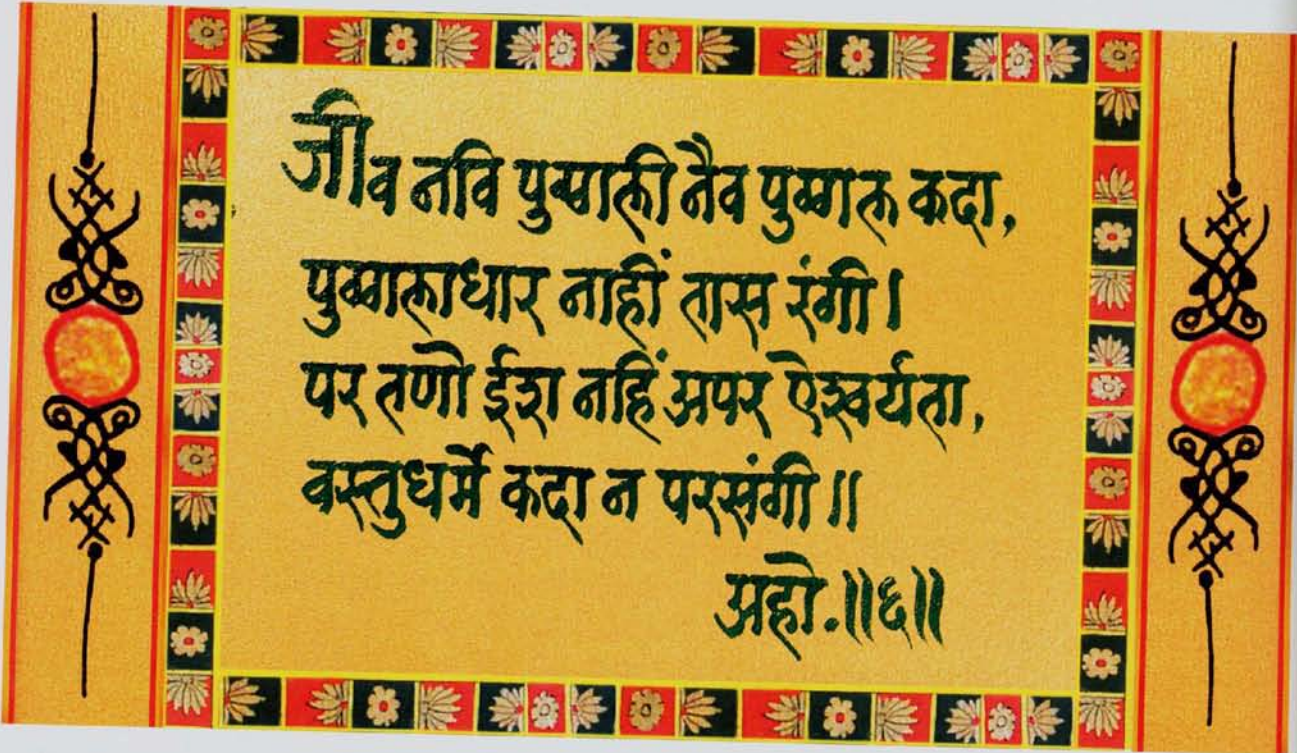 जीव नवि पुग्गली नैव पुग्गल कदा,
पुग्गलाधार नाहीं तास रंगी ।
पर तणो ईश नहिं अपर ऐश्वर्यता,
वस्तुधर्मे कदा न परसंगी ॥
अहो.॥६॥